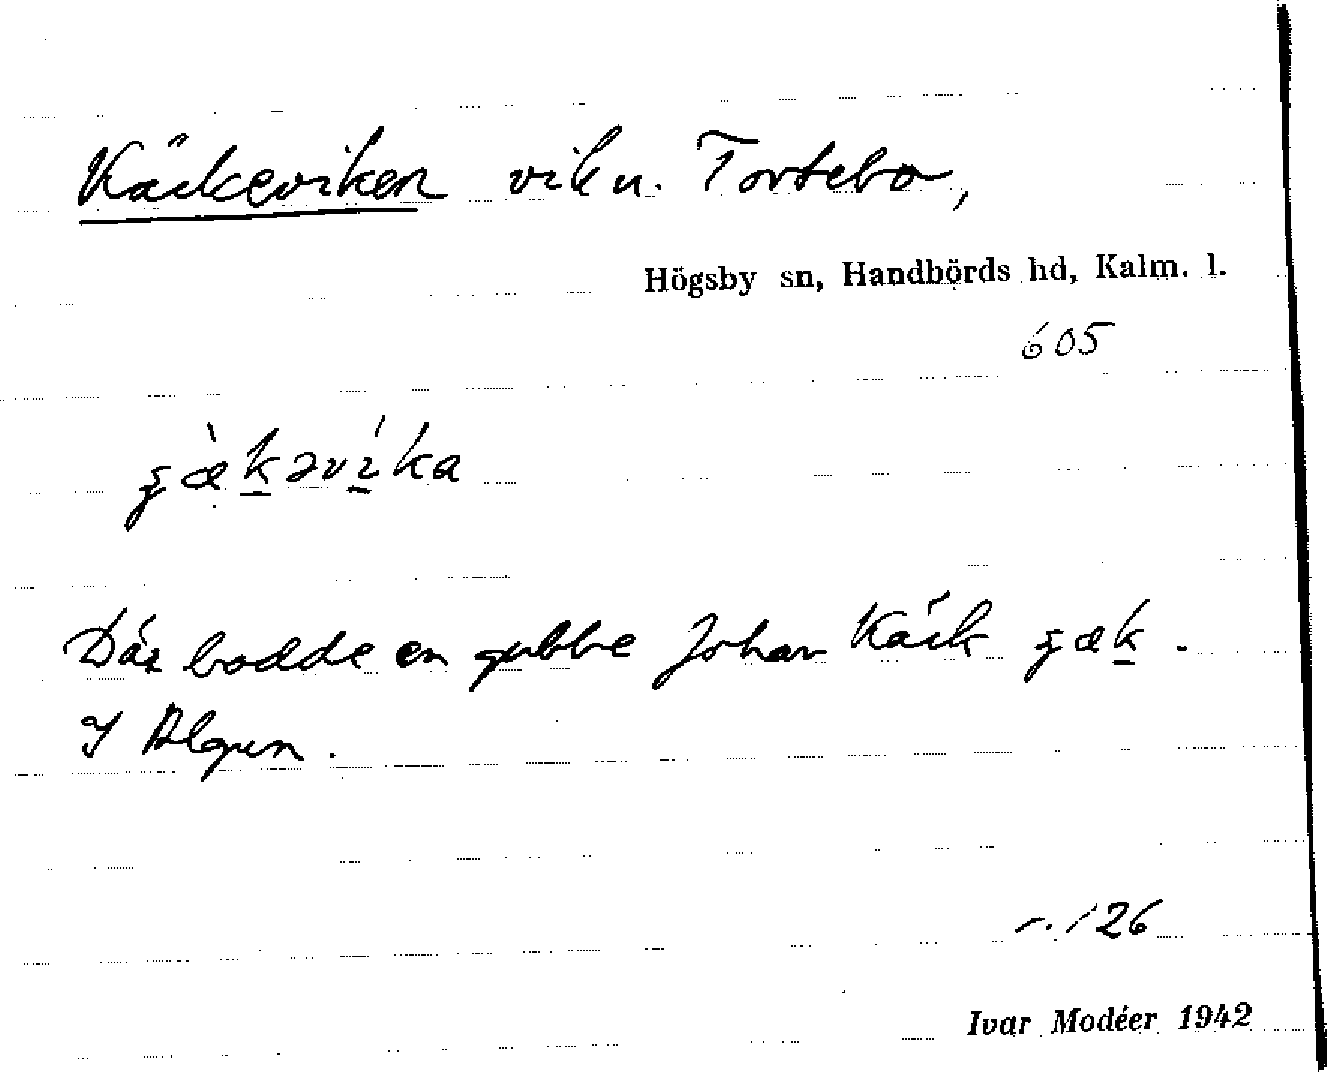 Käckeviken vik u. Tortebo,
Högsby sn, Handbörds hd, Kalm. l.
605
Där bodde en gubbe Johan Käck
I Algun.
126
Ivar Modéer 1942